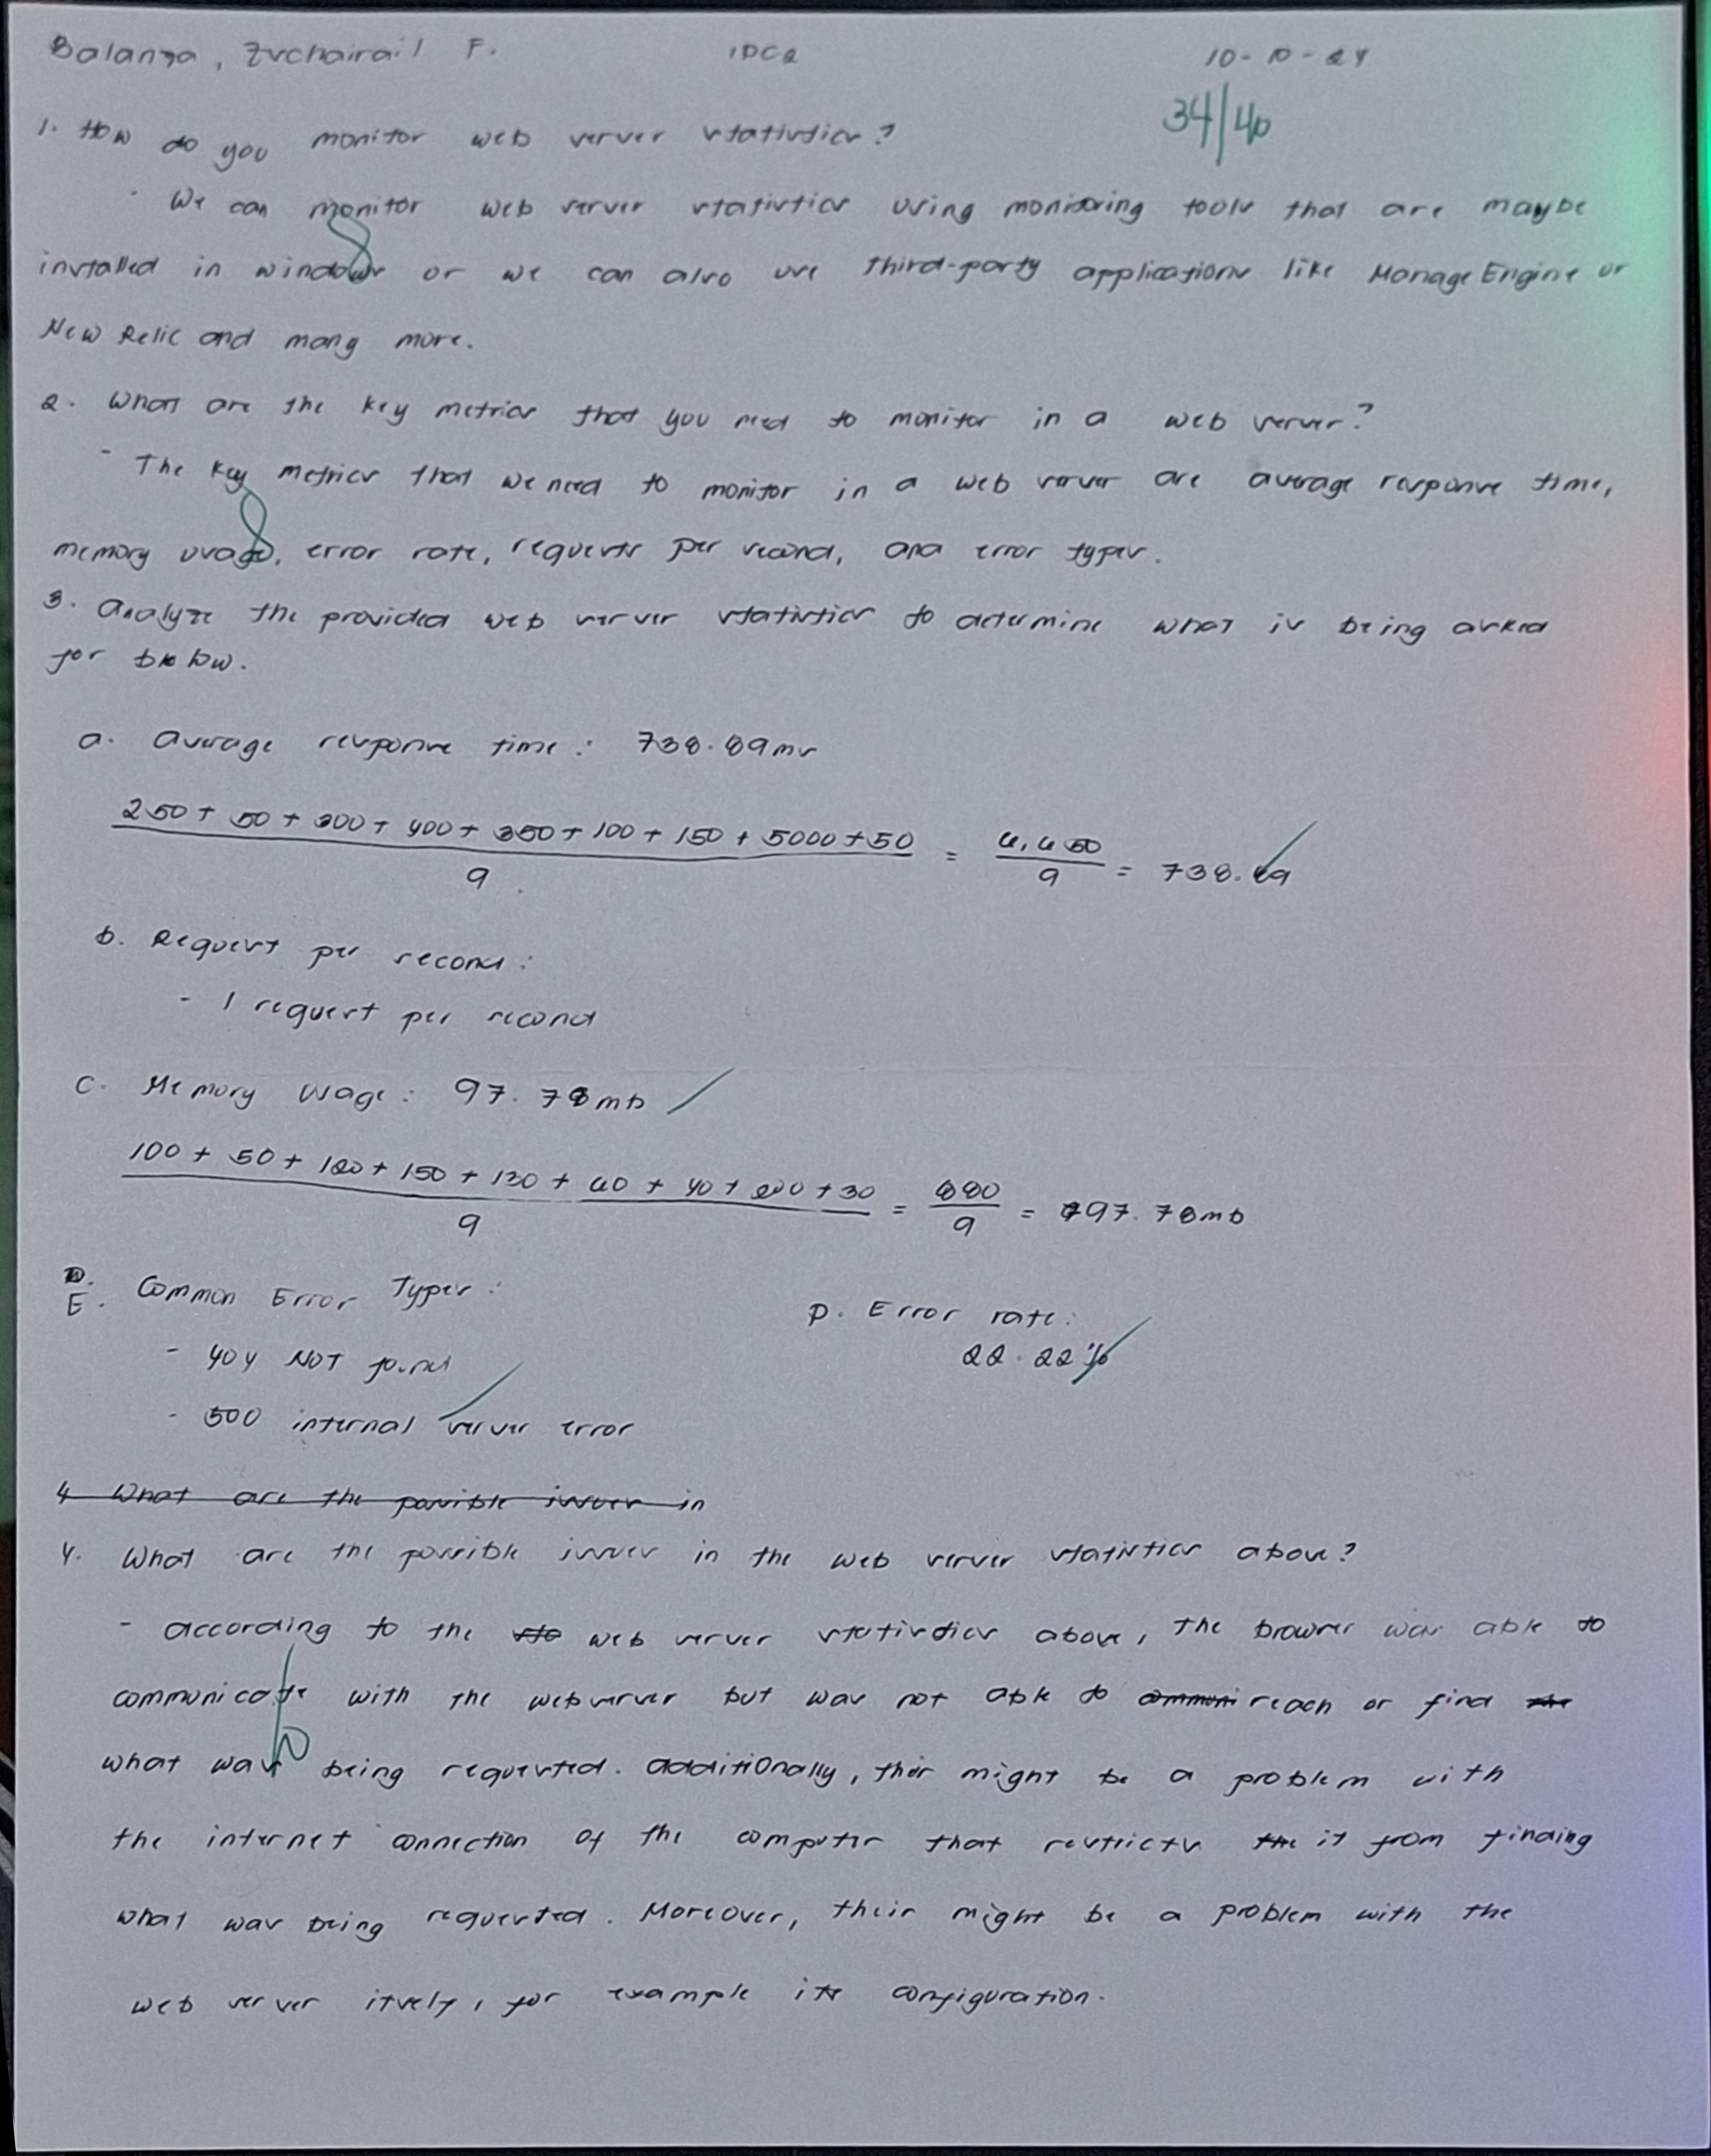 Balanga, Zuchairail F. IDC2 10-10-24
34/40
1. How do you monitor web server statistics?
- We can monitor web server statistics using monitoring tools that are maybe
8
installed in windows or we can also use third-party applications like Manage Engine or
New Relic and many more.
2. What are the key metrics that you need to monitor in a web server?
- The key metrics that we need to monitor in a web server are average response time,
8
memory usage, error rate, requests per second, and error types.
3. Analyze the provided web server statistics to determine what is being asked
for below.
a. average response time : 738.89ms
250 + 50 + 300 + 400 + 350 + 100 + 150 + 5000 + 50 / 9 = 6,650 / 9 = 738.89
b. Request per second :
- 1 request per second
c. Memory usage : 97.78mb
100 + 50 + 120 + 150 + 130 + 60 + 40 + 200 + 30 / 9 = 880 / 9 = 97.78mb
E. Common Error Types : D. Error rate:
- 404 NOT found 22.22%
- 500 internal server error
4 What are the possible issues in
4. What are the possible issues in the web server statistics above?
- according to the sta web server statistics above, the browser was able to
communicate with the webserver but was not able to communi reach or find the
10
what was being requested. additionally, their might be a problem with
the internet connection of the computer that restricts the it from finding
what was being requested. Moreover, their might be a problem with the
web server itself, for example its configuration.